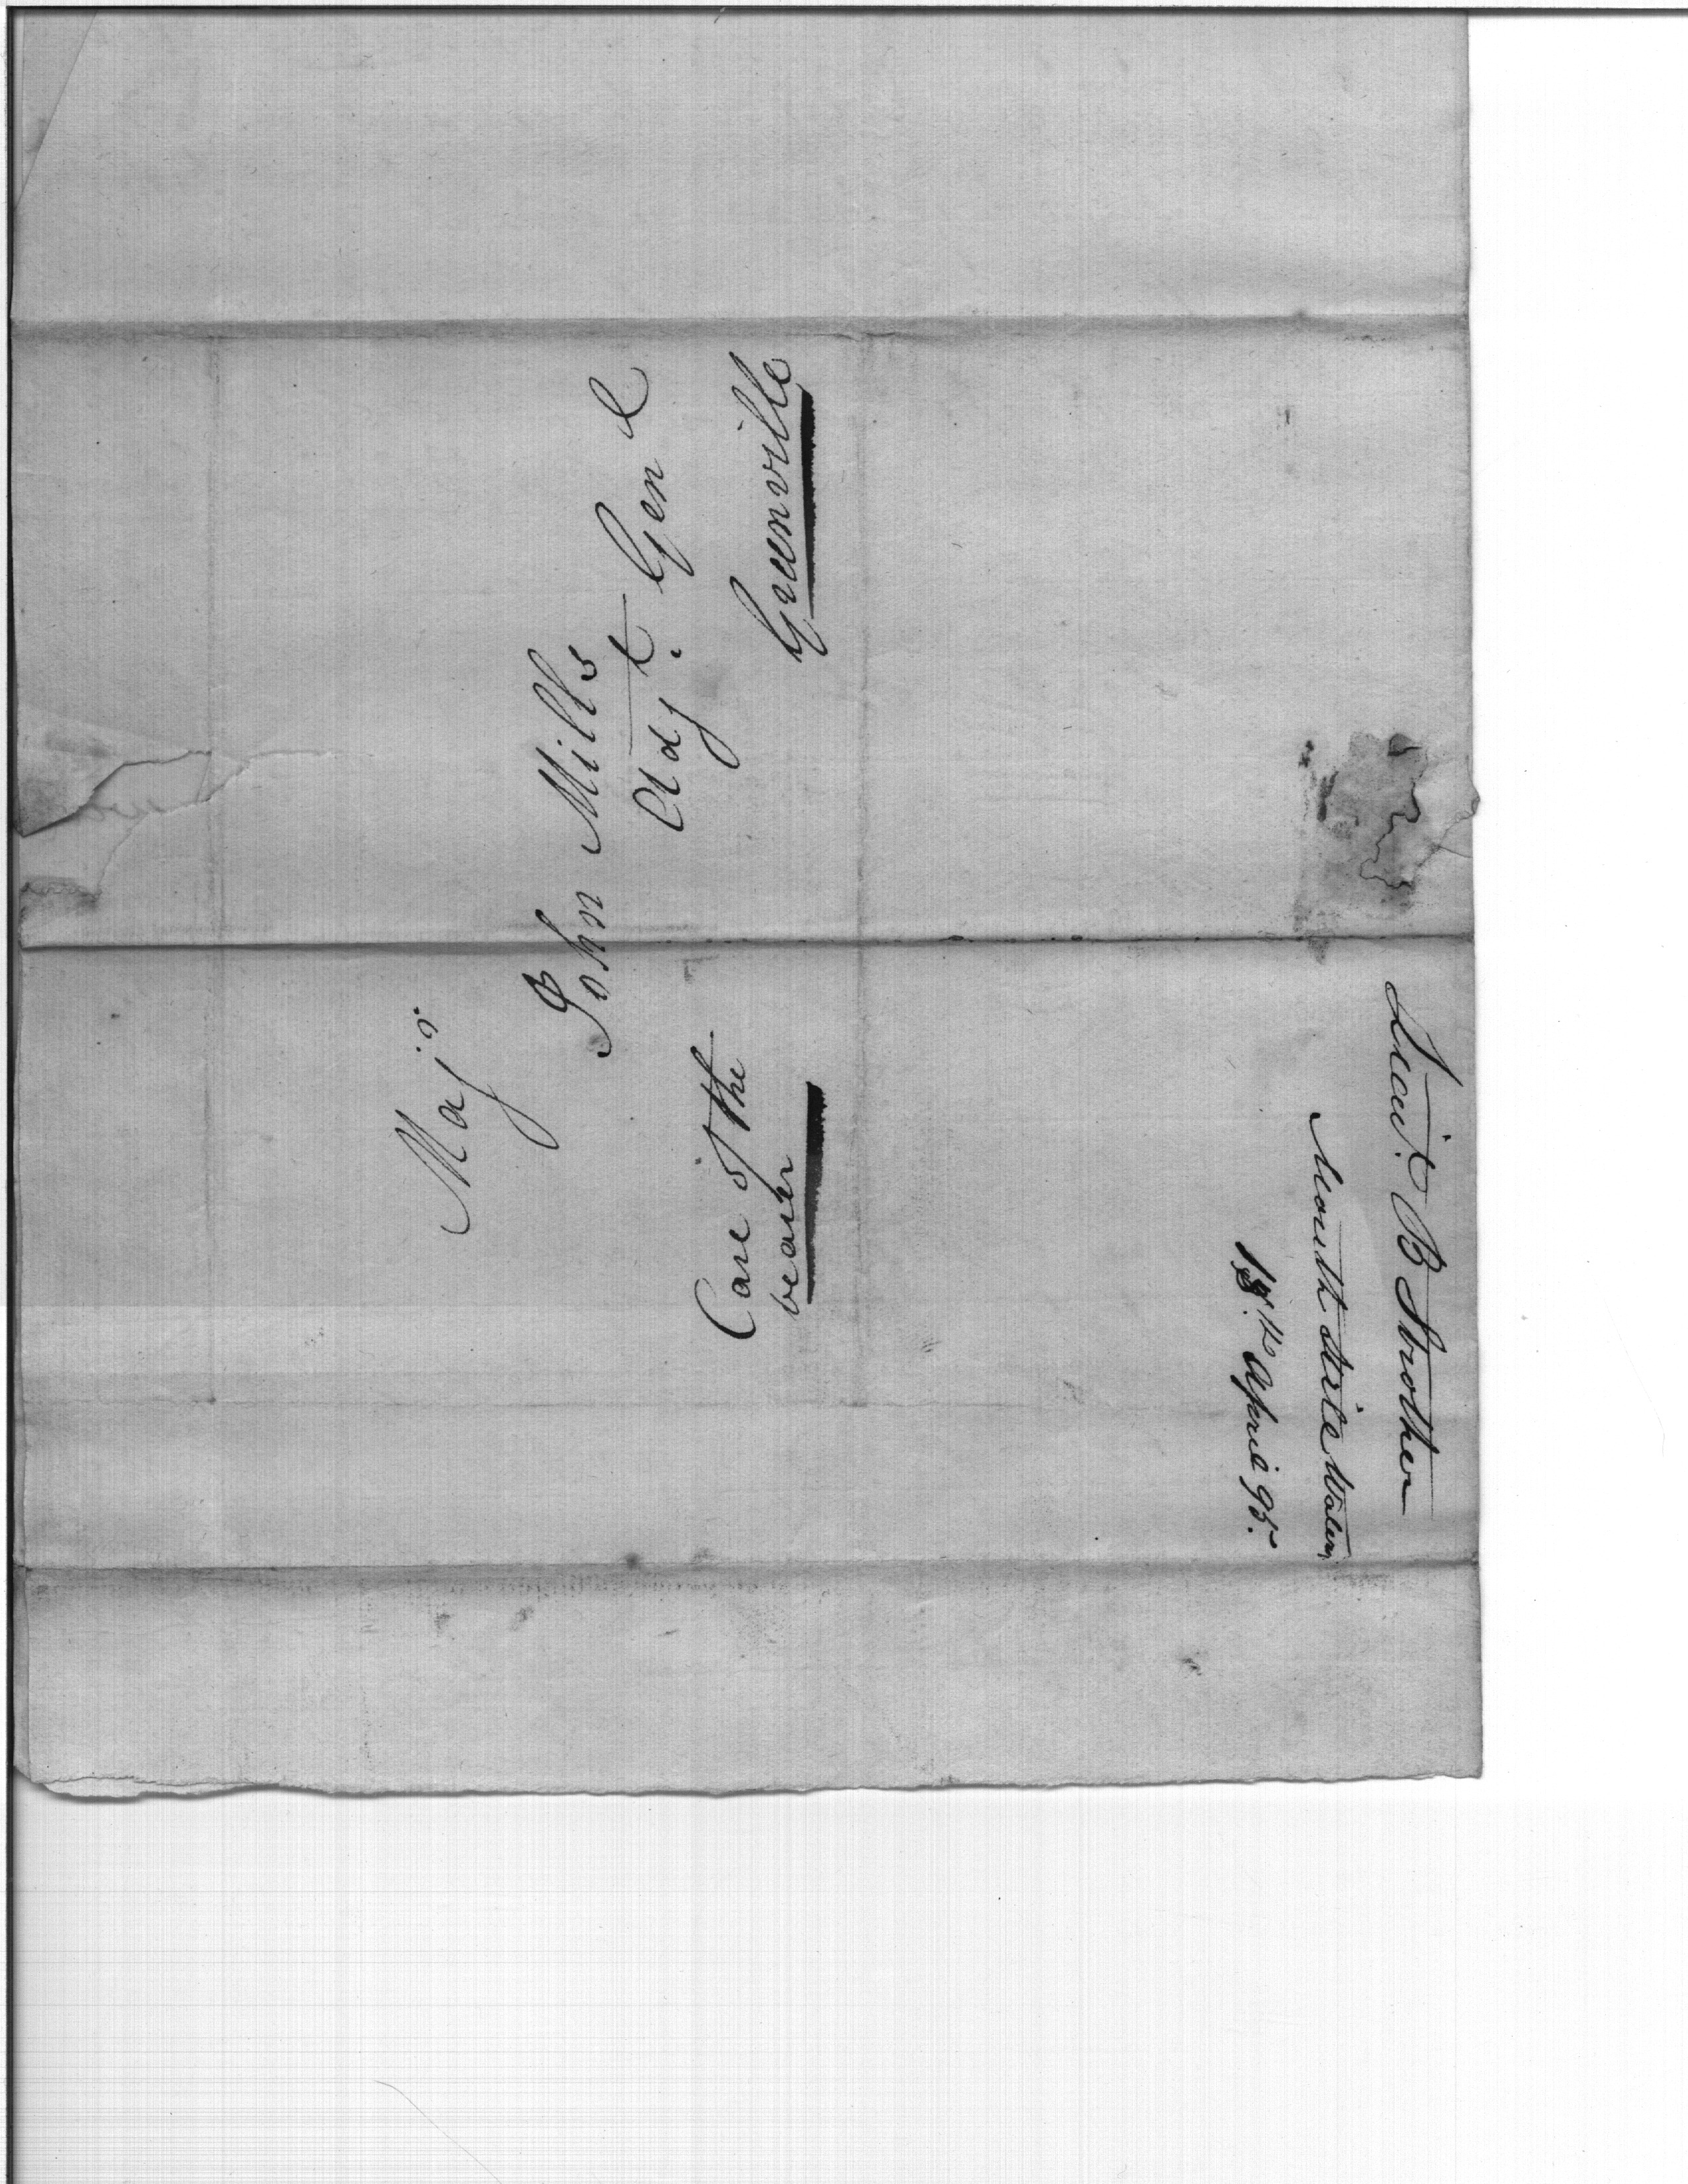 Majr.
John Mills
Adjt. Genl
Care of the
bearer
Greenville
Lieut. B Strother
Mouth Stille Water
18th April 95.